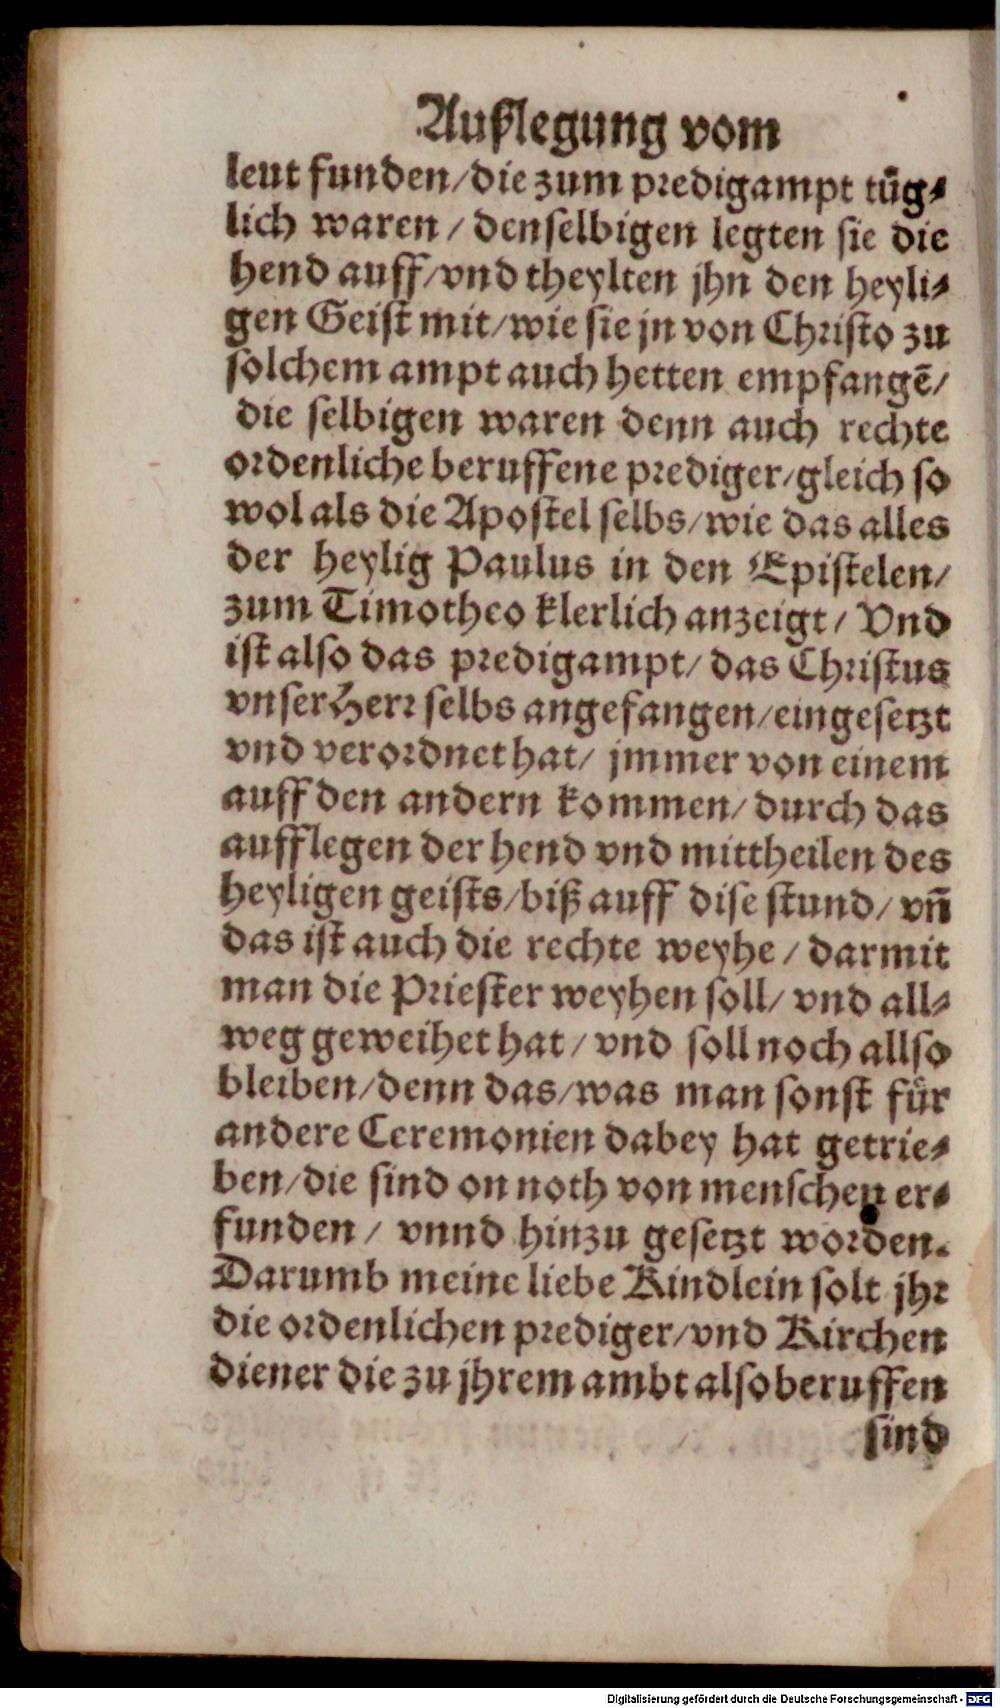 Außlegung vom
leut funden/die zum predigampt tüg-
lich waren / denselbigen legten sie die
hend auff/vnd theylten jhn den heyli-
gen Geist mit/wie sie jn von Christo zu
solchem ampt auch hetten empfangē/
die selbigen waren denn auch rechte
ordenliche beruffene prediger/gleich so
wol als die Apostel selbs/wie das alles
der heylig Paulus in den Epistelen/
zum Timotheo klerlich anzeigt/ Vnd
ist also das predigampt/ das Christus
vnser Herr selbs angefangen/eingesetzt
vnd verordnet hat/ jmmer von einem
auff den andern kommen/ durch das
aufflegen der hend vnd mittheilen des
heyligen geists/biß auff dise stund/ vñ
das ist auch die rechte weyhe / darmit
man die Priester weyhen soll/ vnd all-
weg geweihet hat/ vnd soll noch allso
bleiben/denn das/was man sonst für
andere Ceremonien dabey hat getrie-
ben/die sind on noth von menschen er-
funden / vnnd hinzu gesetzt worden.
Darumb meine liebe Kindlein solt jhr
die ordenlichen prediger/vnd Kirchen
diener die zu jhrem ambt also beruffen
sind
Digitalisierung gefördert durch die Deutsche Forschungsgemeinschaft - DFG